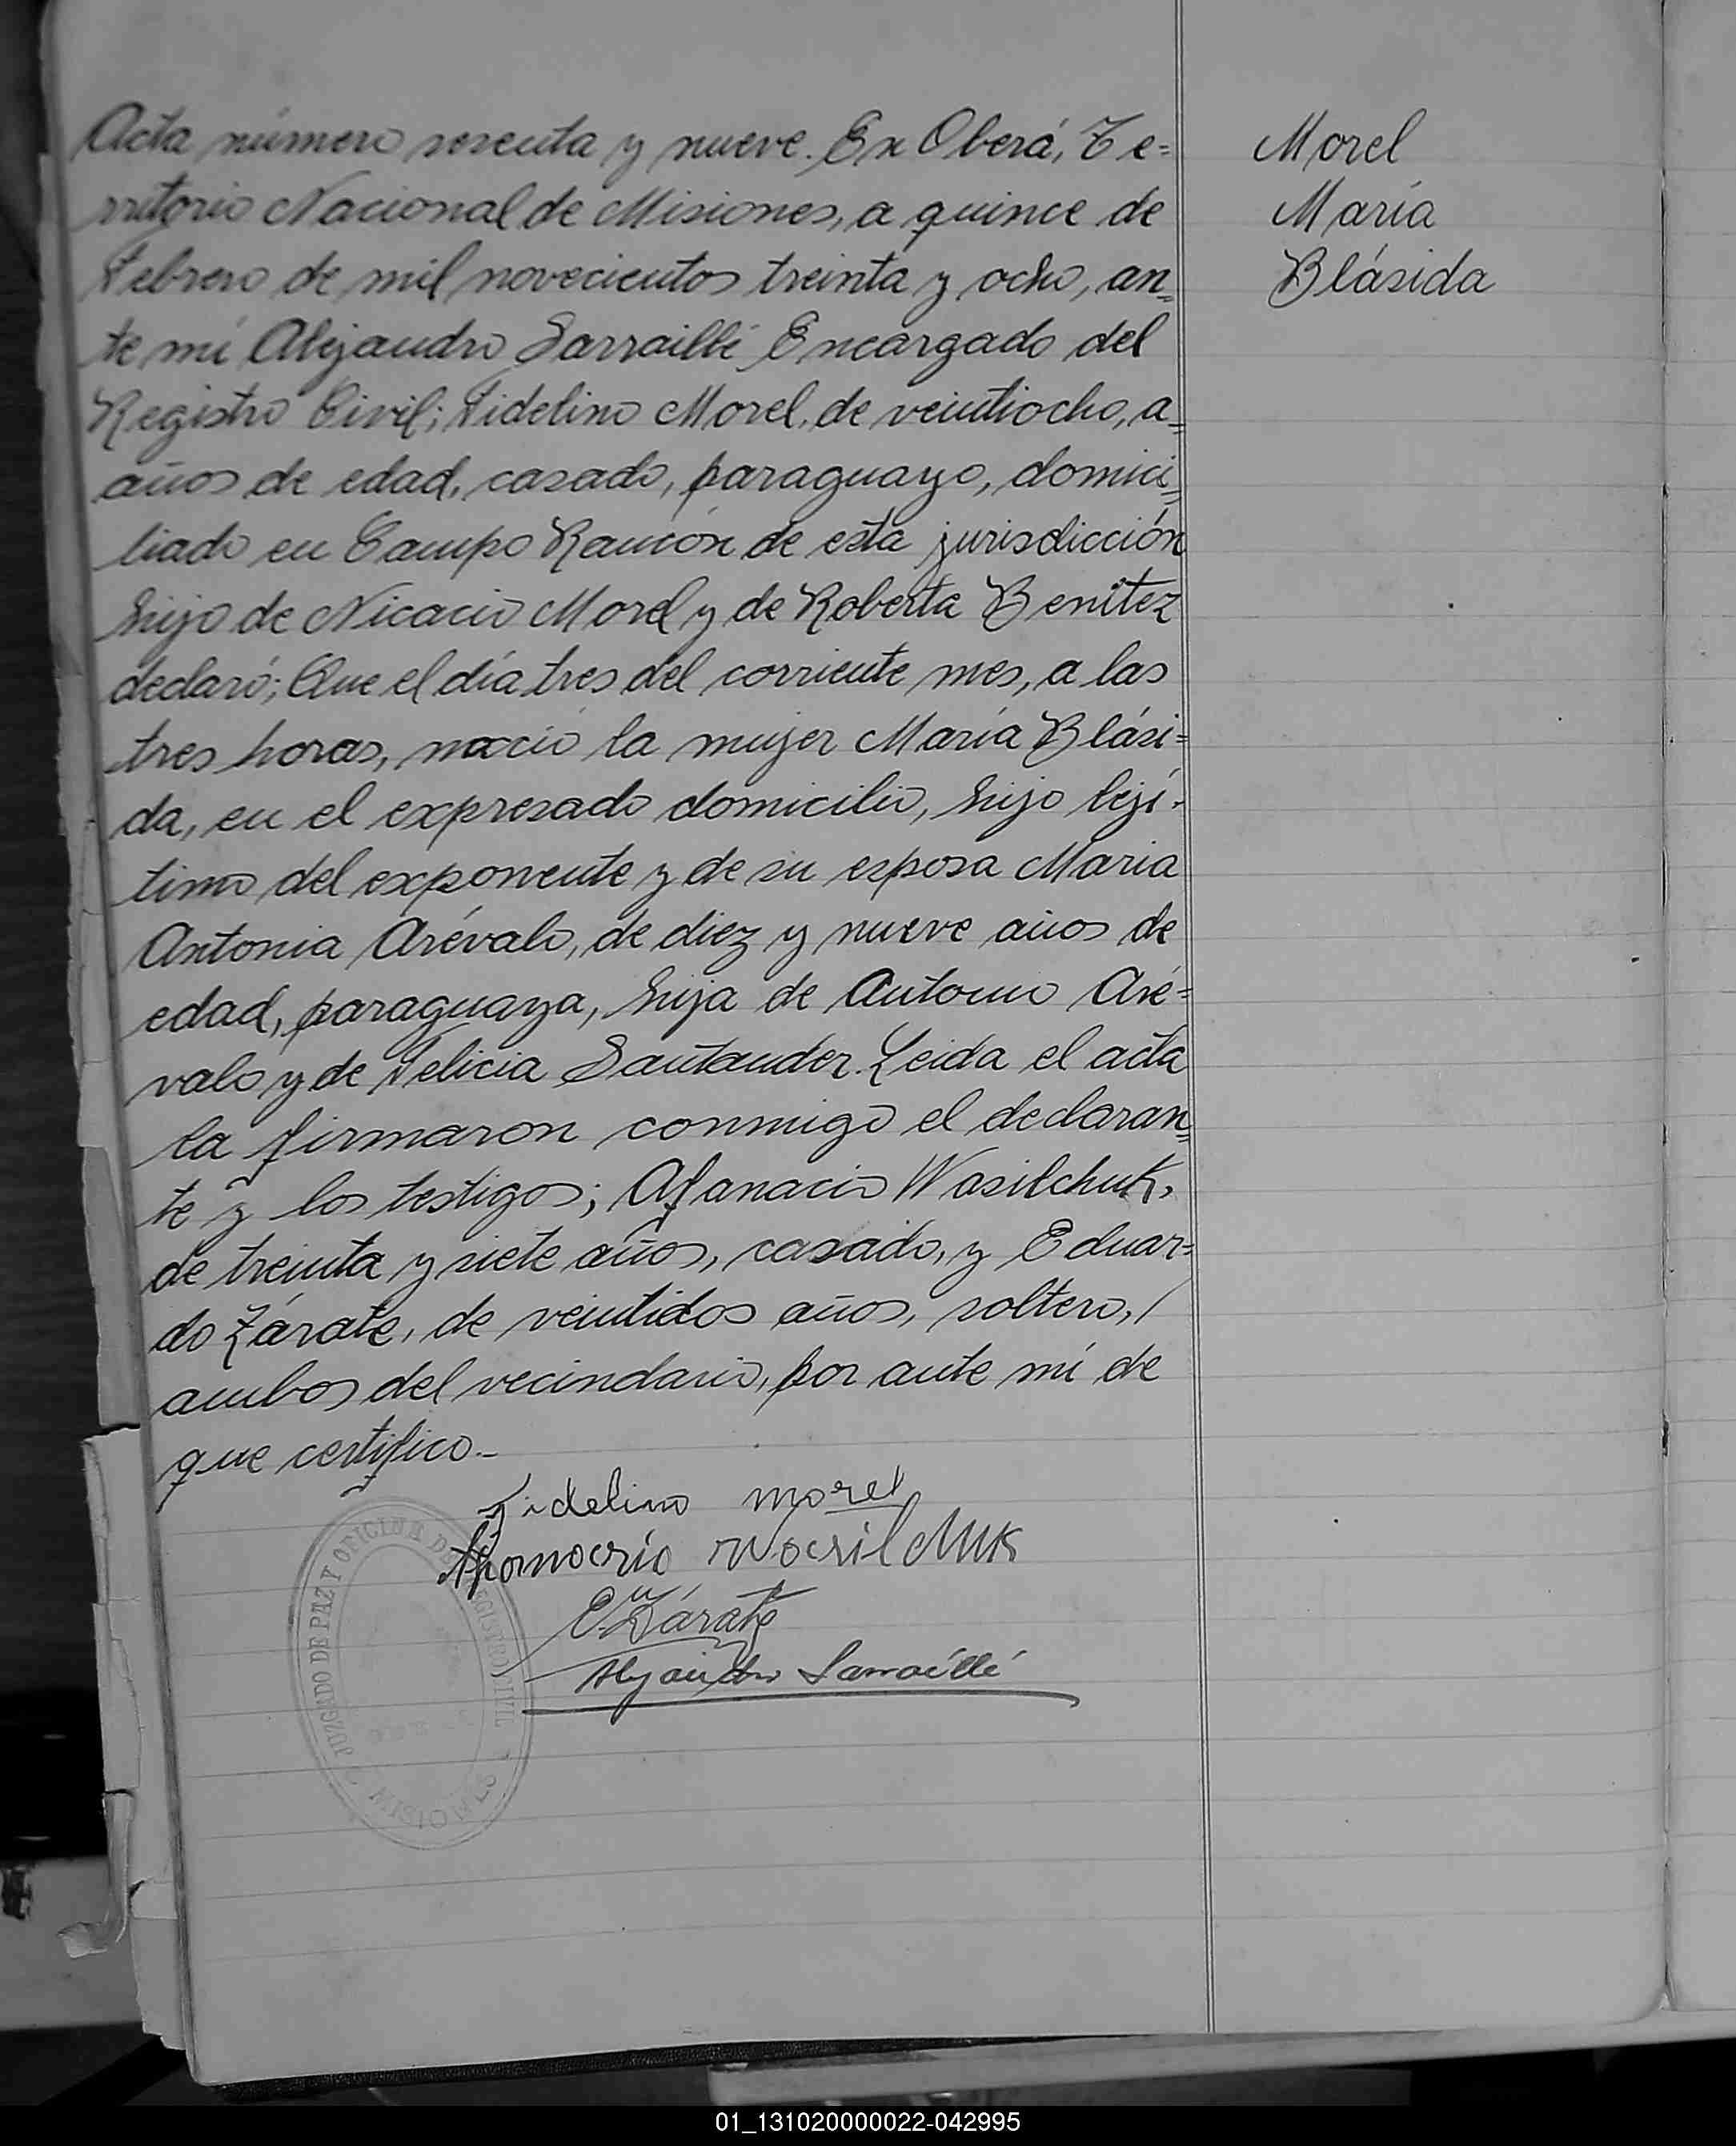 Acta número sesenta y nueve. En Oberá, Te=
rritorio Nacional de Misiones, a quince de
Febrero de mil novecientos treinta y ocho, an=
te mí Alejandro Sarraillé Encargado del
Registro Civil; Fidelino Morel, de veintiocho, a=
años de edad, casado, paraguayo, domici=
liado en Campo Ramón de esta jurisdicción
hijo de Nicacio Morel y de Roberta Benítez
declaró; Que el día tres del corriente mes, a las
tres horas, nacció la mujer María Blási=
da, en el expresado domicilio, hijo lejí-
timo del exponente y de su esposa María
Antonia Arévalo, de diez y nueve años de
edad, paraguaya, hija de Antonio Aré=
valo y de Felicia Santander. Leida el acta
la firmaron conmigo el declaran=
te y los testigos; Afanacio Wasilchuk,
de treinta y siete años, casado, y Eduar=
do Zárate, de veintidos años, soltero, /
ambos del vecindario, por ante mí de
que certifico.-
Morel
María
Blásida
Fidelino Morel
Wocsilchuk
E. Zárate
Alejandro Sarraillé
JUZGADO DE PAZ Y OFICINA DEL REGISTRO CIVIL
MISIONES
01_131020000022-042995